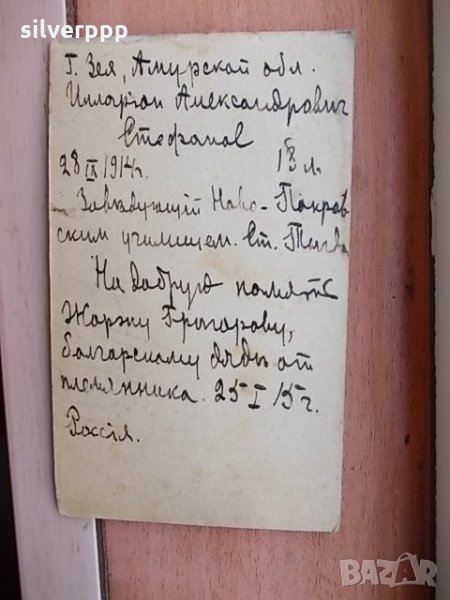 silverppp
Г. Зея, Амурской обл.
Илларіон Александрович
Стефанов
28 IX 1914 г. 18 л.
Завѣдующій Ново-Покров
ским училищем. Ст. Тыгда
На добрую память
Жоржу Григорову,
болгарскому дядѣ от
племянника. 25 I 15 г.
Россія.
BAZAR